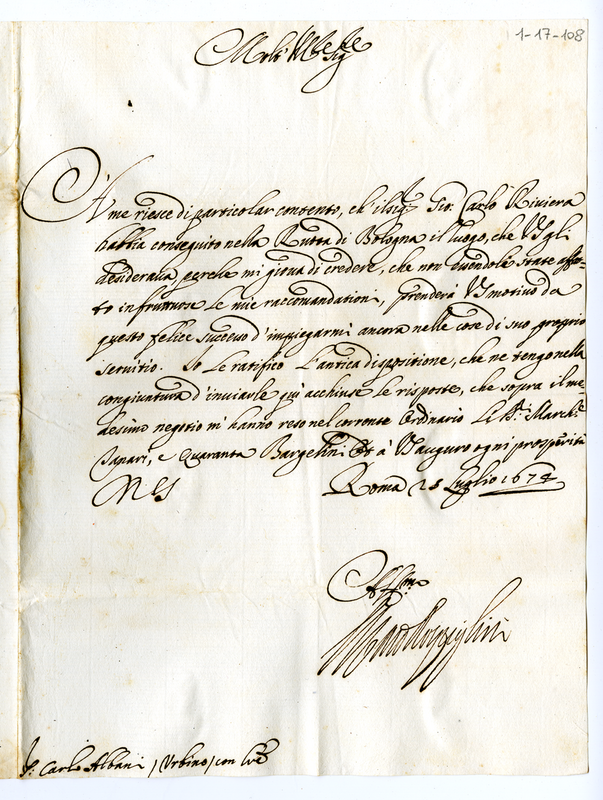 1-17-108
Molt' Ill.re Sig.re
A' me riesce di particolar contento, ch' il Sig.r Gio: Carlo Riviera
habbia conseguito nella Ruota di Bologna il luogo, che VS gli
desiderava perche mi giova di credere, che non essendole state affat-
to infruttuose le mie raccomandationi, prenderà VS motivo da
questo felice successo d'impiegarmi ancora nelle cose di suo proprio
servitio. Io le ratifico l'antica dispositione, che ne tengo nella
congiuntura d'inviarle qui acchiuse le risposte, che sopra il me
desimo negotio m' hanno reso nel corrente Ordinario li SS.ri March.e
Tanari, e Quaranta Bargelini Et à VS auguro ogni prosperità
Roma 28 Luglio 1674
Aff.mo
S.r Carlo Albani / Urbino / con l.re